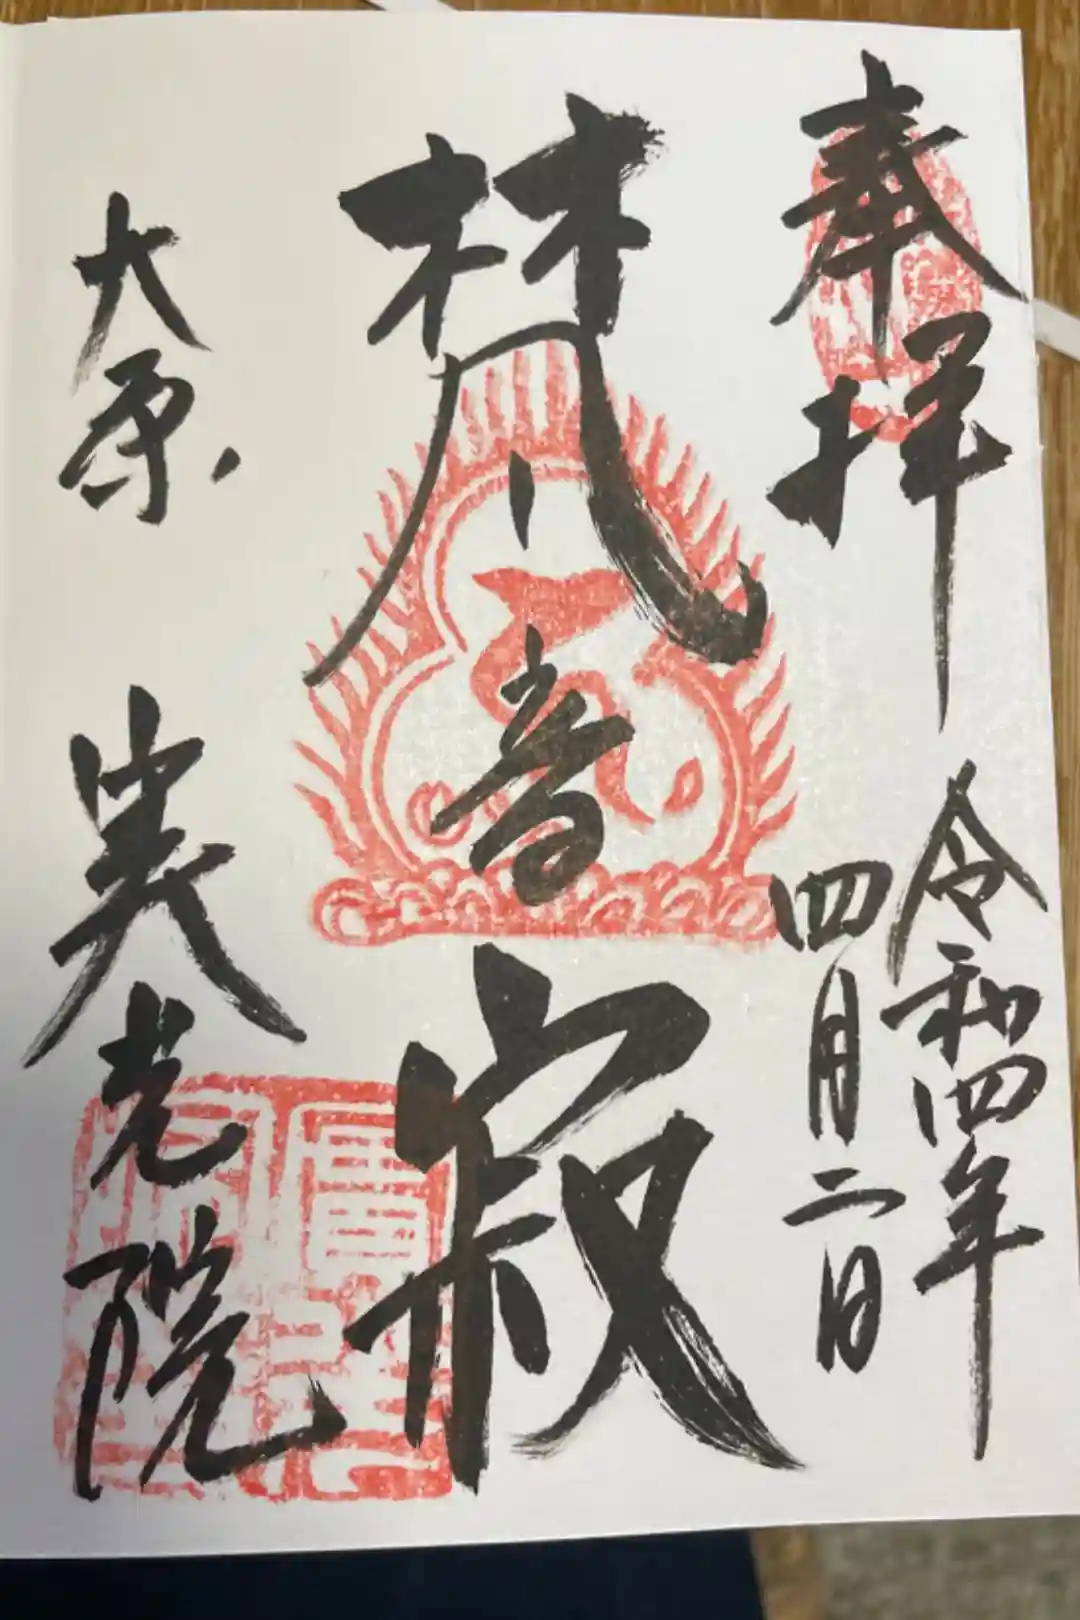 奉拝
令和四年
四月二日
梵音寂
大原
実光院